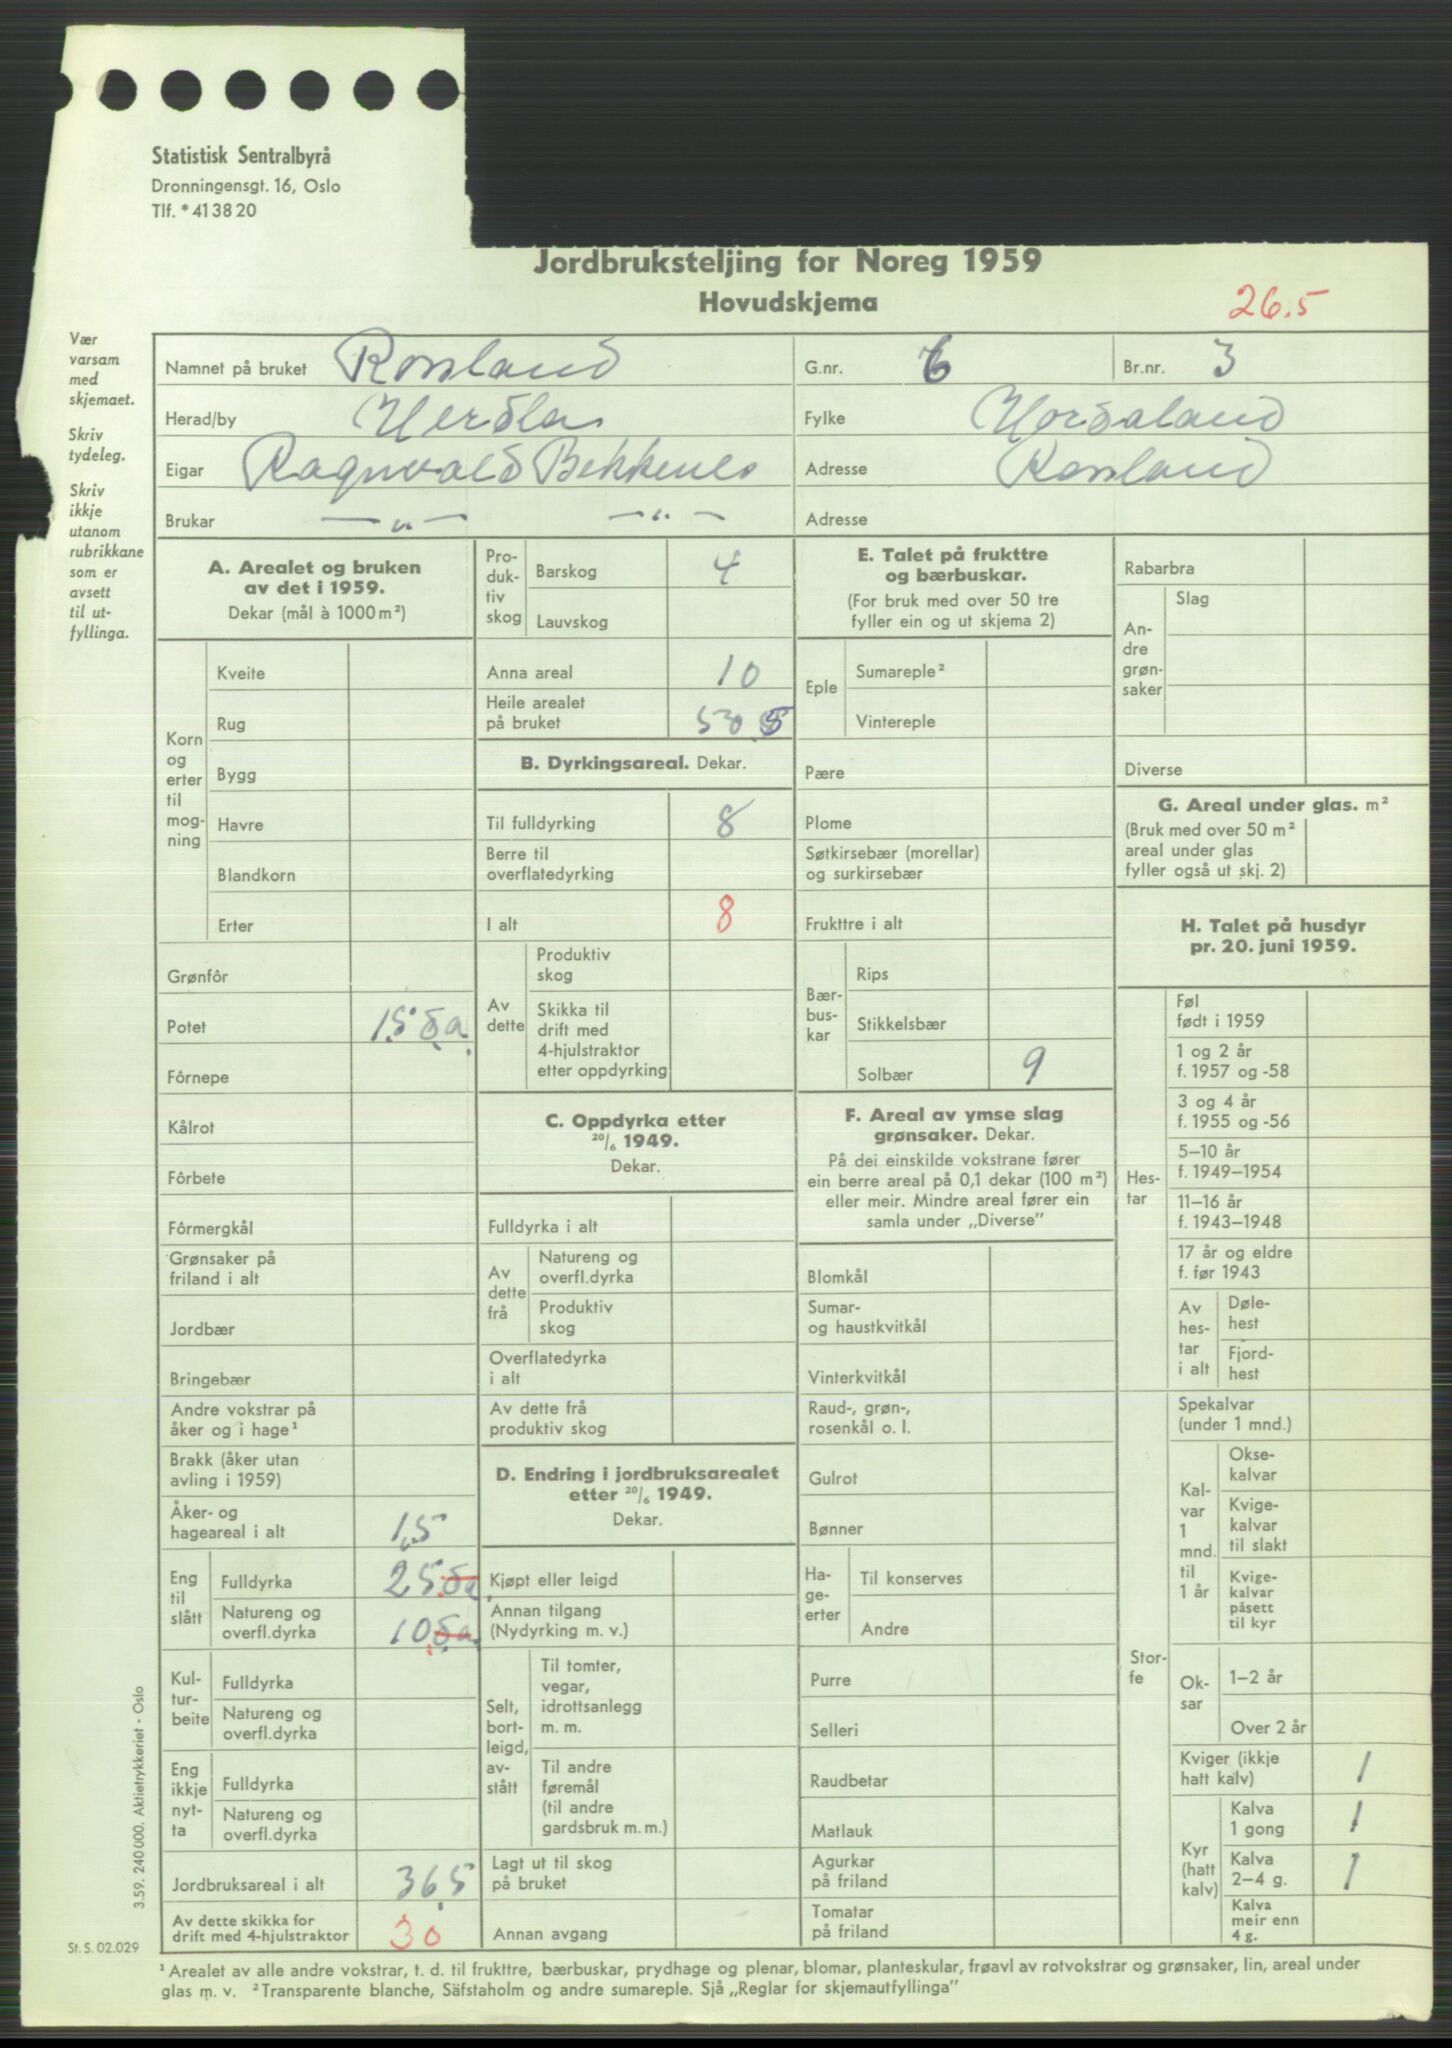 Statistisk Sentralbyrå
Dronningensgt. 16, Oslo
Tlf. *413820
Jordbruksteljing for Noreg 1959
Hovudskjema
26.5
Vær
varsam
med
skjemaet.
Skriv
tydeleg.
Skriv
ikkje
utanom
rubrikkane
som er
avsett
til ut-
fyllinga.
Namnet på bruket Rossland G.nr. 6 Br.nr. 3
Herad/by Herdla Fylke Hordaland
Eigar Ragnvald Bekkenes Adresse Rossland
Brukar — „ — — „ — Adresse
A. Arealet og bruken
av det i 1959.
Dekar (mål à 1000 m²)
Korn
og
erter
til
mog-
ning
Kveite
Rug
Bygg
Havre
Blandkorn
Erter
Grønfôr
Potet 1,5 da.
Fôrnepe
Kålrot
Fôrbete
Fôrmergkål
Grønsaker på
friland i alt
Jordbær
Bringebær
Andre vokstrar på
åker og i hage¹
Brakk (åker utan
avling i 1959)
Åker- og
hageareal i alt 1,5
Eng
til
slått
Fulldyrka 25 da.
Natureng og
overfl.dyrka 10 da.
Kul-
tur-
beite
Fulldyrka
Natureng og
overfl.dyrka
Eng
ikkje
nyt-
ta
Fulldyrka
Natureng og
overfl.dyrka
Jordbruksareal i alt 36,5
Av dette skikka for
drift med 4-hjulstraktor 30
Pro-
duk-
tiv
skog
Barskog 4
Lauvskog
Anna areal 10
Heile arealet
på bruket 50,5
B. Dyrkingsareal. Dekar.
Til fulldyrking 8
Berre til
overflatedyrking
I alt 8
Av
dette
Produktiv
skog
Skikka til
drift med
4-hjulstraktor
etter oppdyrking
C. Oppdyrka etter
20/6 1949.
Dekar.
Fulldyrka i alt
Av
dette
frå
Natureng og
overfl.dyrka
Produktiv
skog
Overflatedyrka
i alt
Av dette frå
produktiv skog
D. Endring i jordbruksarealet
etter 20/6 1949.
Dekar.
Kjøpt eller leigd
Annan tilgang
(Nydyrking m. v.)
Selt,
bort-
leigd,
av-
stått
Til tomter,
vegar,
idrottsanlegg
m. m.
Til andre
føremål
(til andre
gardsbruk m. m.)
Lagt ut til skog
på bruket
Annan avgang
E. Talet på frukttre
og bærbuskar.
(For bruk med over 50 tre
fyller ein og ut skjema 2)
Eple
Sumareple²
Vintereple
Pære
Plome
Søtkirsebær (morellar)
og surkirsebær
Frukttre i alt
Bær-
bus-
kar
Rips
Stikkelsbær
Solbær 9
F. Areal av ymse slag
grønsaker. Dekar.
På dei einskilde vokstrane fører
ein berre areal på 0,1 dekar (100 m²)
eller meir. Mindre areal fører ein
samla under „Diverse”
Blomkål
Sumar-
og haustkvitkål
Vinterkvitkål
Raud-, grøn-,
rosenkål o. l.
Gulrot
Bønner
Ha-
ge-
erter
Til konserves
Andre
Purre
Selleri
Raudbetar
Matlauk
Agurkar
på friland
Tomatar
på friland
Rabarbra
An-
dre
grøn-
saker
Slag
Diverse
G. Areal under glas. m²
(Bruk med over 50 m²
areal under glas
fyller også ut skj. 2)
H. Talet på husdyr
pr. 20. juni 1959.
Hes-
tar
Føl
født i 1959
1 og 2 år
f. 1957 og -58
3 og 4 år
f. 1955 og -56
5–10 år
f. 1949–1954
11–16 år
f. 1943–1948
17 år og eldre
f. før 1943
Av
hes-
tar
i alt
Døle-
hest
Fjord-
hest
Stor-
fe
Spekalvar
(under 1 mnd.)
Kal-
var
1
mnd.
til
1 år
Okse-
kalvar
Kvige-
kalvar
til slakt
Kvige-
kalvar
påsett
til kyr
Ok-
sar
1–2 år
Over 2 år
Kviger (ikkje
hatt kalv) 1
Kyr
(hatt
kalv)
Kalva
1 gong 1
Kalva
2–4 g. 1
Kalva
meir enn
4 g.
3.59. 240 000. Aktietrykkeriet - Oslo
St. S. 02.029
¹ Arealet av alle andre vokstrar, t. d. til frukttre, bærbuskar, prydhage og plenar, blomar, planteskular, frøavl av rotvokstrar og grønsaker, lin, areal under
glas m. v. ² Transparente blanche, Säfstaholm og andre sumareple. Sjå „Reglar for skjemautfyllinga”